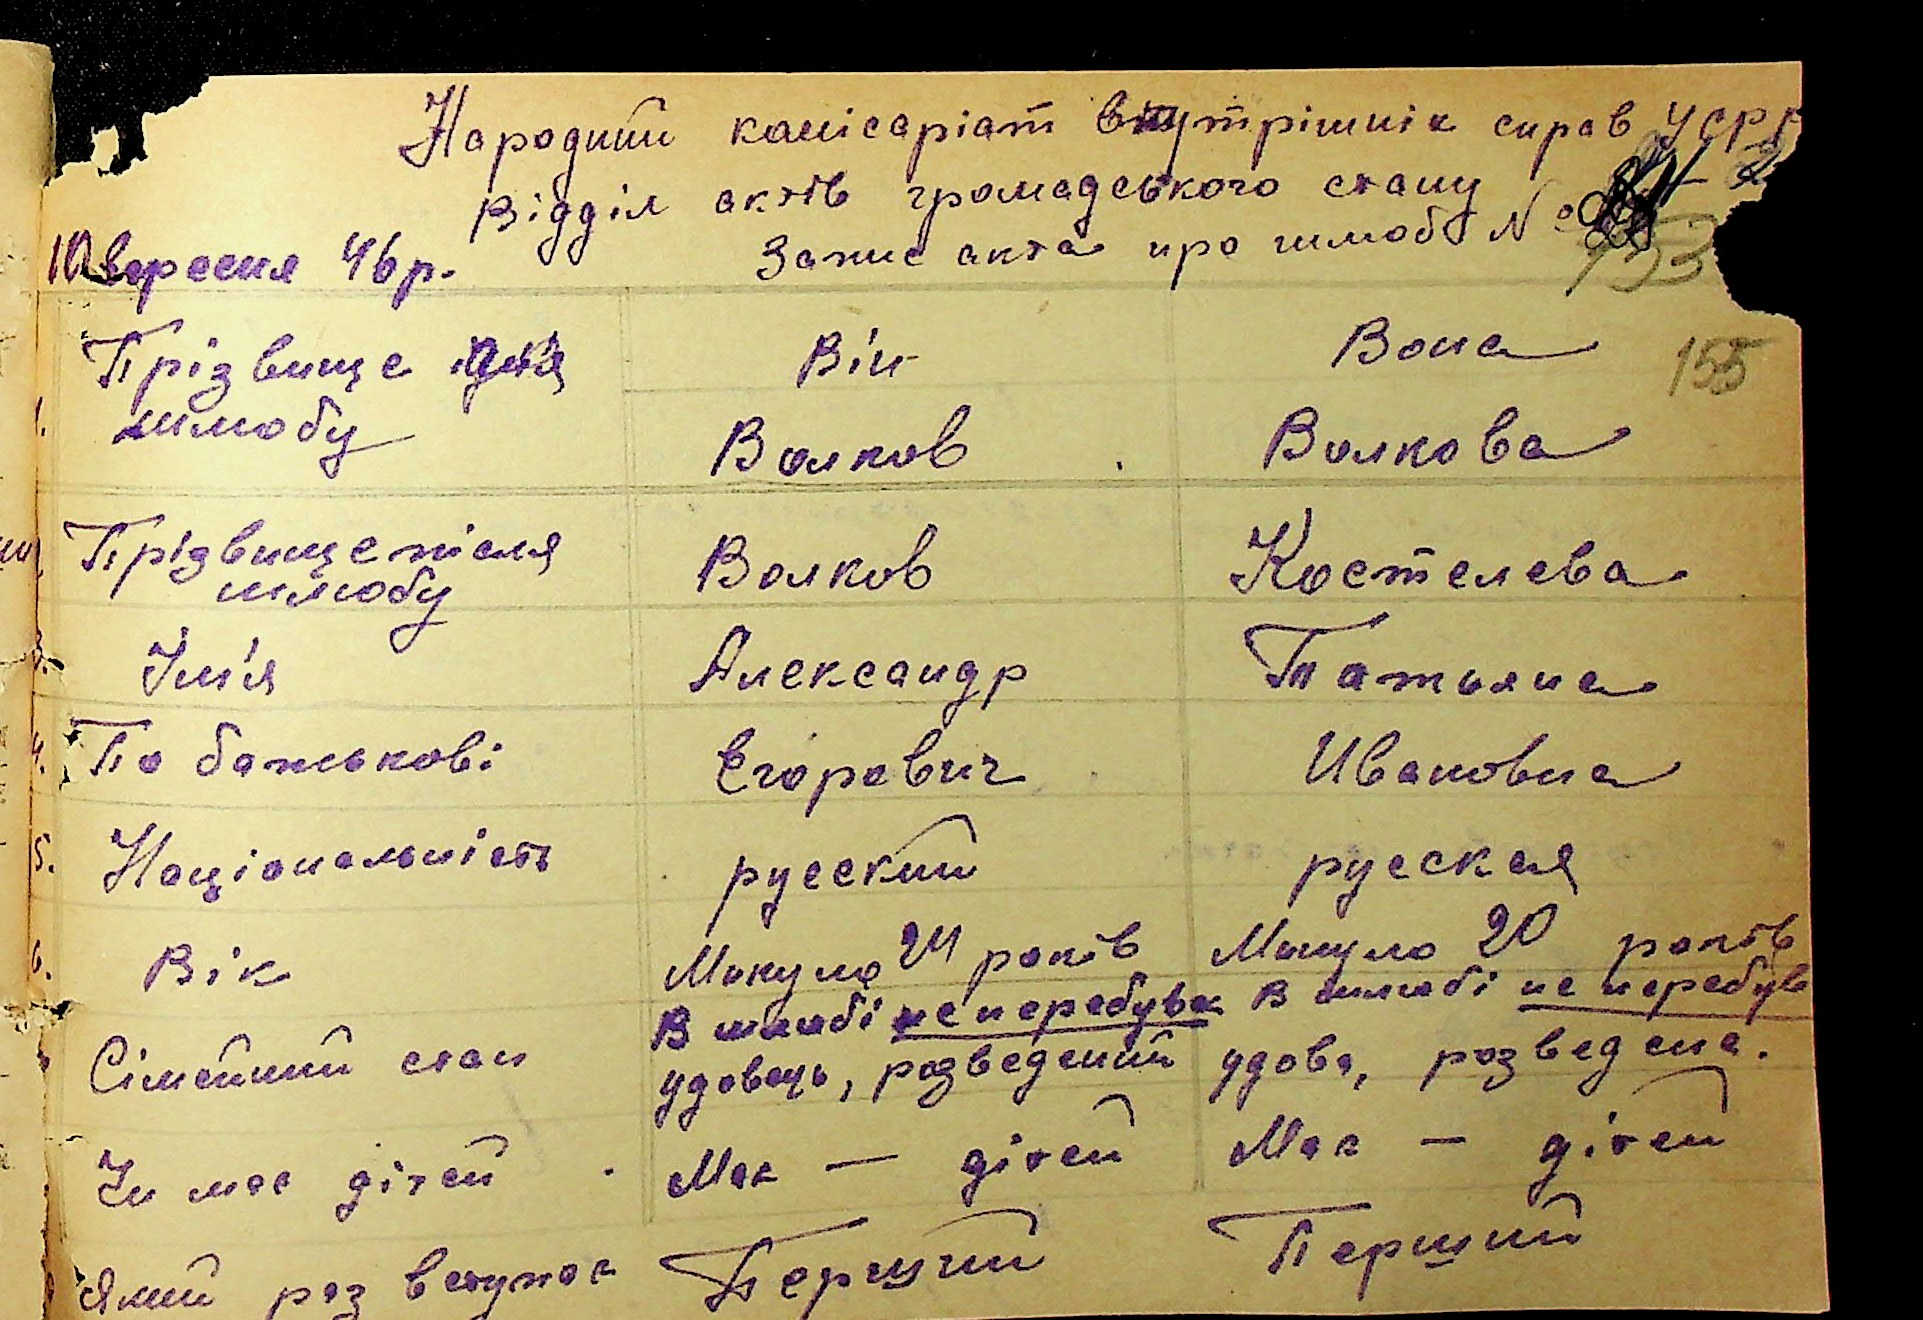 Народний комісаріат внутрішніх справ УСРР
Відділ актів громадського стану
10 вересня 46 р. Запис акта про шлюб №
153
Прізвище для шлюбу Він Вона 155
1. Волков Волкова
Прізвище після шлюбу Волков Костелева
3. Ім'я Александр Татьяна
4. По батькові Егорович Ивановна
5. Національність русский русская
6. Вік Минуло 24 років Минуло 20 років
Сімейний стан В шлюбі не перебував В шлюбі не перебув
удовець, розведений удова, розведена.
Чи має дітей Має — дітей Має — дітей
Який раз вступає Перший Перший